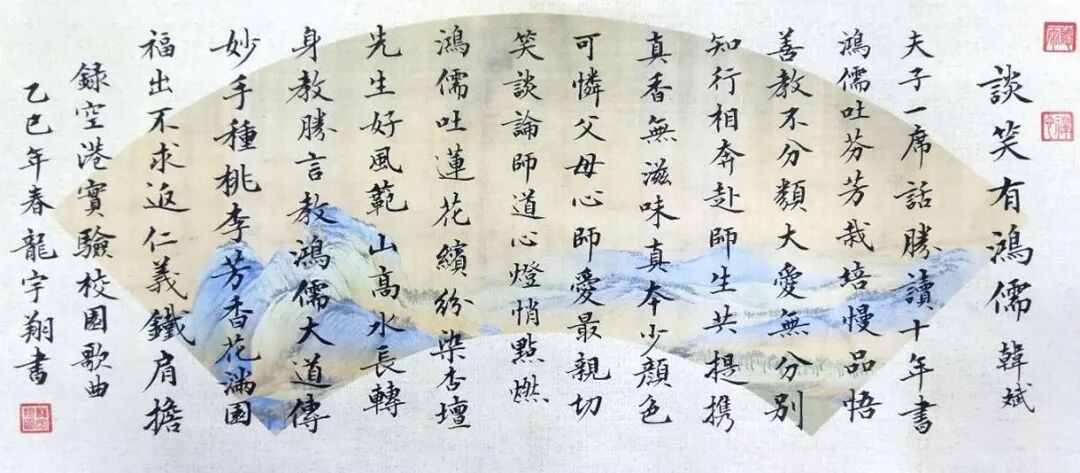 談笑有鴻儒 韓斌
夫子一席話勝讀十年書
鴻儒吐芬芳栽培慢品悟
善教不分類大愛無分別
知行相奔赴師生共提携
真香無滋味真本少顏色
可憐父母心師愛最親切
笑談論師道心燈悄點燃
鴻儒吐蓮花繽紛染杏壇
先生好風範山高水長轉
身教勝言教鴻儒大道傳
妙手種桃李芳香花滿園
福出不求返仁義鐵肩擔
録空港實驗校園歌曲
乙巳年春龍宇翔書